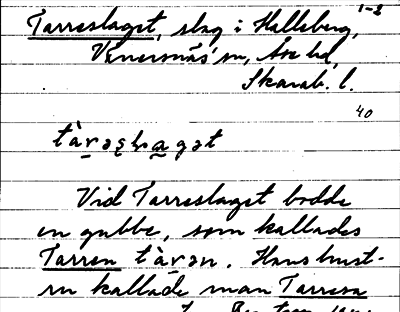 1-2
Tarreslaget, slag i Halleberg,
Vänersnäs sn, Åse hd,
Skarab. l.
40
tàrəslagət
Vid Tarreslaget bodde
en gubbe, som kallades
Tarren tàrən. Hans hust-
ru kallade man Tarresa